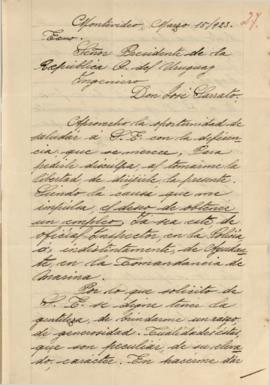 27.
Montevideo, Marzo 15/923.
Exmo.
Señor Presidente de la
República O. del Uruguay
Ingeniero
Don José Serrato.
Aprovecho la oportunidad de
saludar a S. E. con la deferen
cia que se merece, para
pedirle disculpa, al tomarme la
libertad de dirigirle la presente.
Siendo la causa que me
impulsa, el deseo de obtener
un empleo. Ya sea este, de
oficial Inspector, en la Policia
o, indistintamente, de Ayudan
te, en la Comandancia de
Marina.
Por lo que solicito de
V. E. se digne tener la
gentileza, de brindarme un rasgo
de generosidad. Cualidades estas,
que son peculiar, de su eleva
do, carácter. En hacerme dar